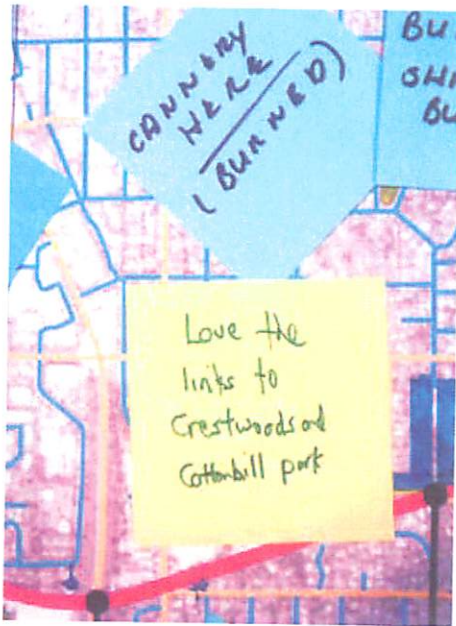 CANNERY
HERE
(BURNED)
BU
SH
BU
Love the
links to
Crestwoods and
Cottonhill park